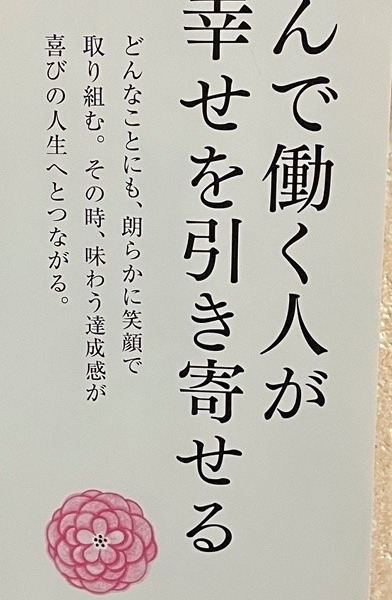 んで働く人が
幸せを引き寄せる
どんなことにも、朗らかに笑顔で
取り組む。その時、味わう達成感が
喜びの人生へとつながる。